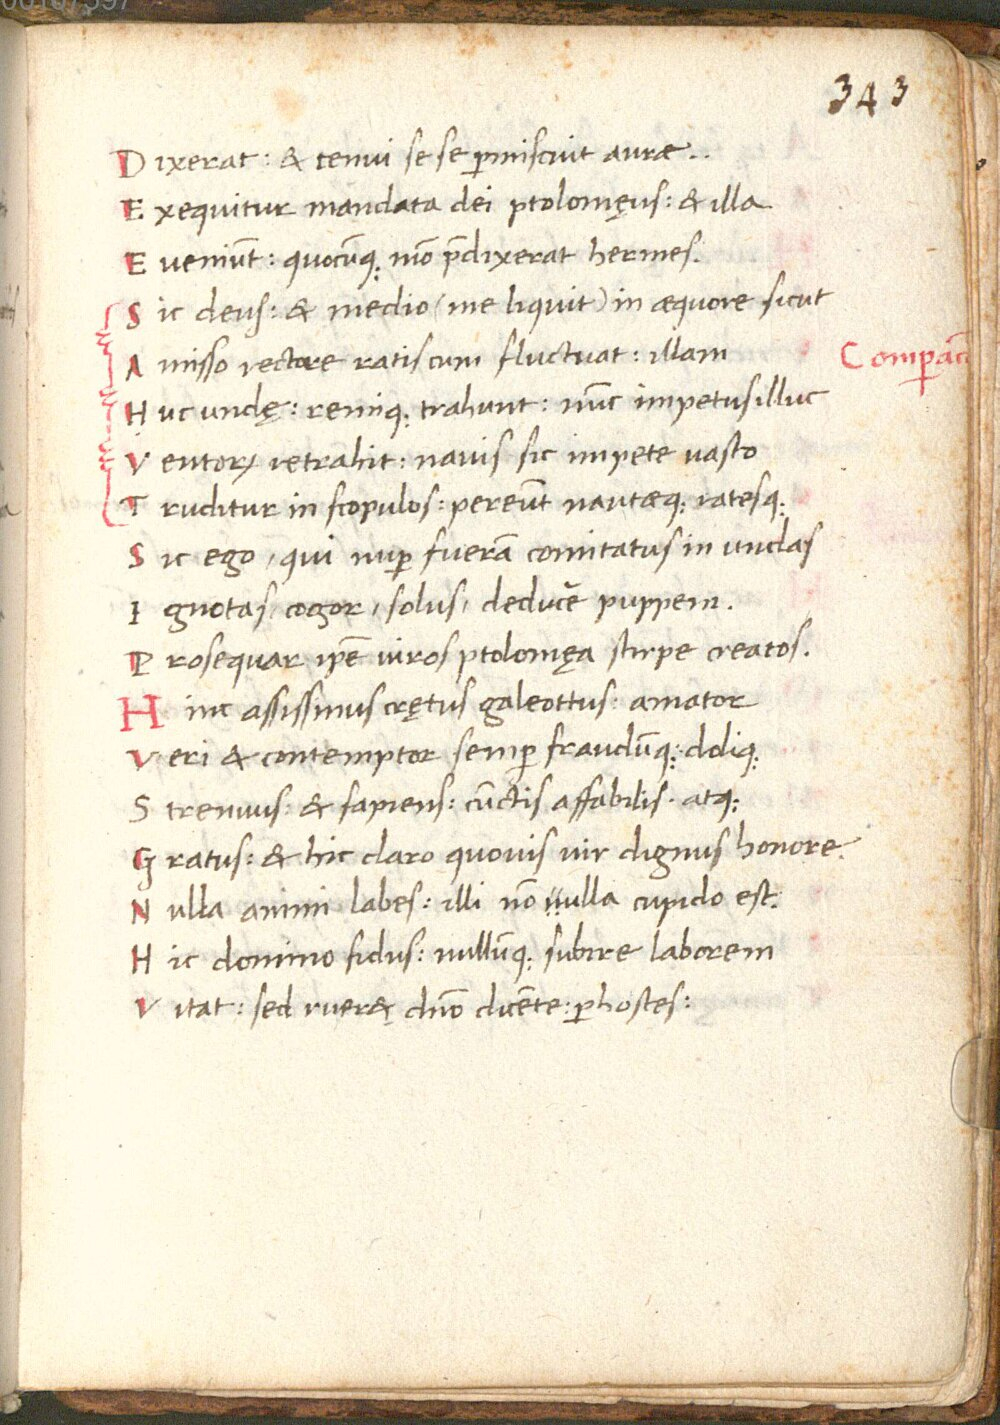 343
Dixerat: & tenui se se ꝑmiscuit auræ..
Exequitur mandata dei ptolomęus: & illa
Eveniūt: quocūq; mō p̄dixerat hermes.
Sic deus: & medio (me liquit) in æquore sicut
Amisso rectore ratis cum fluctuat: illam
Comꝑatı̄
Huc undę: remiq; trahunt: nūc impetus illuc
Ventoꝝ retrahit: navis sic impete vasto
Truditur in scopulos: pereūt nautæq; ratesq;
Sic ego, qui nuꝑ fuerā comitatus in undas
Ignotas, cogor, solus, deducẽ puppem.
Prosequar ip̄e viros ptolomęa stirpe creatos.
Hinc assissinus crętus galeottus: amator
Veri & contemptor semꝑ fraudūq; doliq;
Strenuus: & sapiens: cūctis affabilis. atq;
Gratus: & hic claro quovis vir dignus honore.
Nulla animi labes: illi nō nulla cupido est.
Hic domino fidus: nullūq; subire laborem
Vitat: sed rueret dn̄o ducēte: ꝑ hostes: